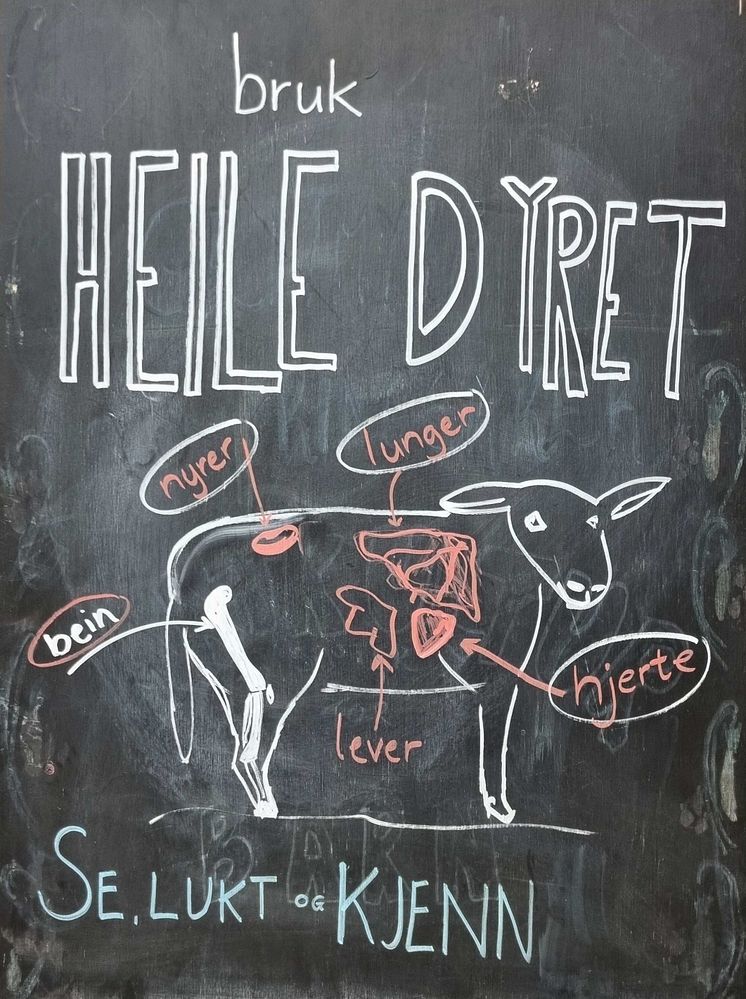 bruk
HEILE DYRET
nyrer
lunger
bein
hjerte
lever
SE, LUKT OG KJENN